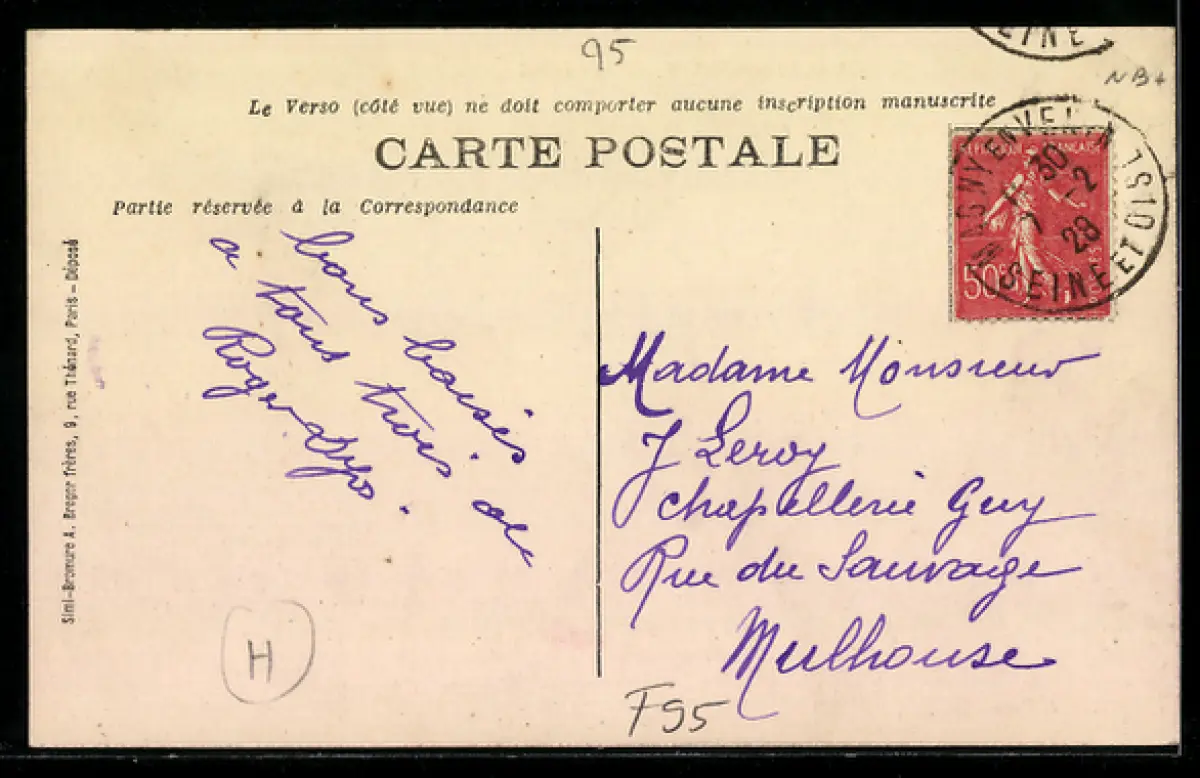 95
EINE
NB+
Le Verso (côté vue) ne doit comporter aucune inscription manuscrite
CARTE POSTALE
Partie réservée à la Correspondance
MAGNY EN VEXIN
SEINE ET OISE
1 30
7 -2
28
50c
bons baisés
a tous trois de
Roger
Madame Monsieur
J Leroy
chapellerie Guy
Rue du Sauvage
Mulhouse
Simi-Bromure A. Breger frères, 9, rue Thénard, Paris – Déposé
H
F95